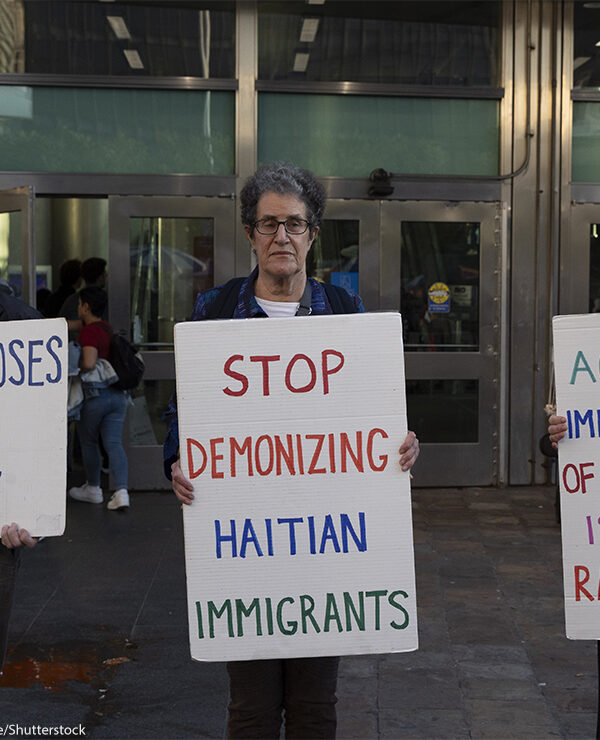 OSES
STOP
DEMONIZING
HAITIAN
IMMIGRANTS
OF
e/Shutterstock